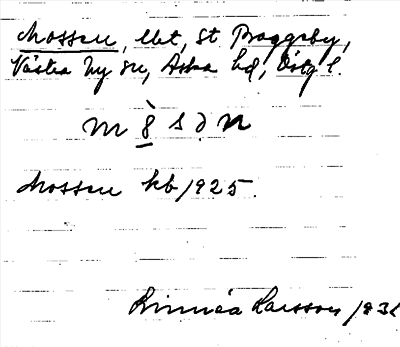 Mossen, lht, St Broggeby,
Västra Ny sn, Aska hd, Östg l.
m ò̱ s ə n
Mossen kb 1925.
Linnéa Larsson 193